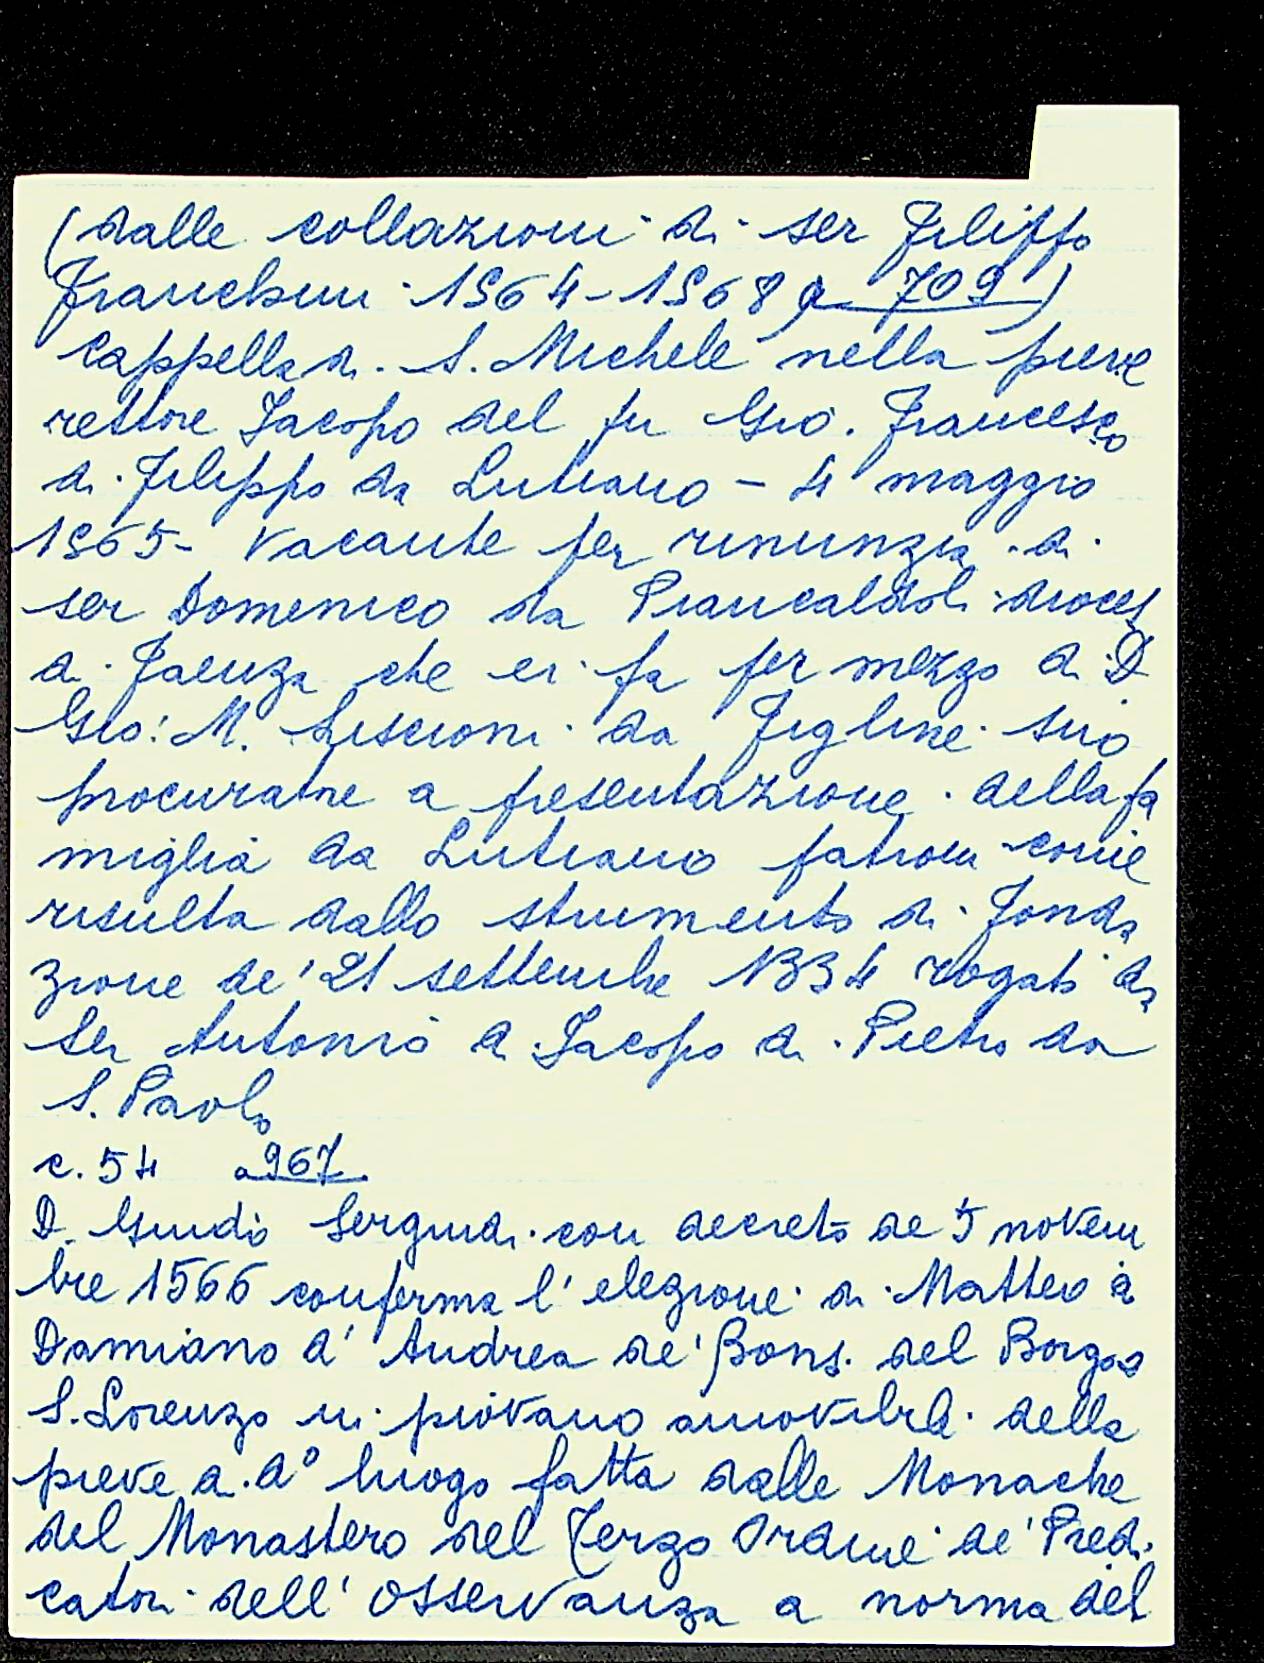 (dalle collazioni di ser Filippo
Franchini 1564-1568 a 709)
Cappella di S. Michele nella pieve
rettore Jacopo del fu Gio. Francesco
di Filippo da Lutiano - 4 maggio
1565- Vacante per rinunzia di
ser Domenico da Piancaldoli dioces
di Faenza che ei fa per mezzo di D
Gio: M. Liscioni da Figline suo
procuratore a presentazione della fa
miglia da Lutiano patroni come
risulta dallo strumento di fonda
zione de' 21 settembre 1334 rogato da
Ser Antonio di Jacopo di Pietro da
S. Paolo
c. 54 a 967
D. Guido Serguidi con decreto de 5 novem
bre 1566 conferma l' elezione di Matteo di
Damiano d' Andrea de' Bonsi del Borgo a
S. Lorenzo in piovano amovibile della
pieve di do luogo fatta dalle Monache
del Monastero del Terzo Ordine de' Predi
catori dell' Osservanza a norma del